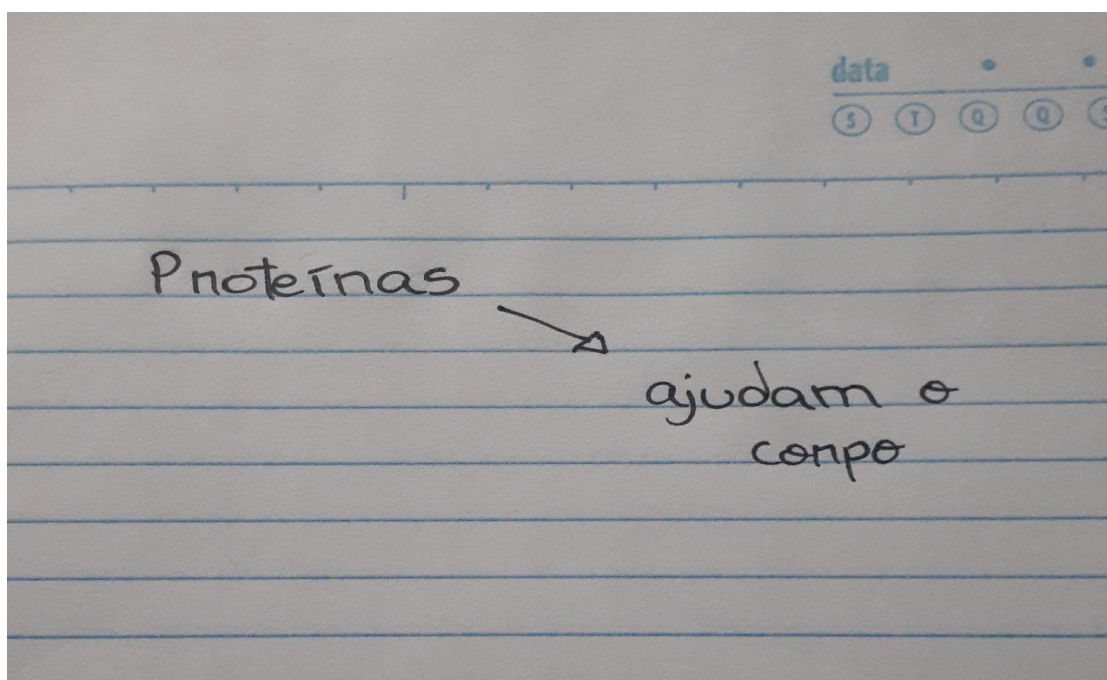 data
S T Q Q S
Proteínas
ajudam o
corpo